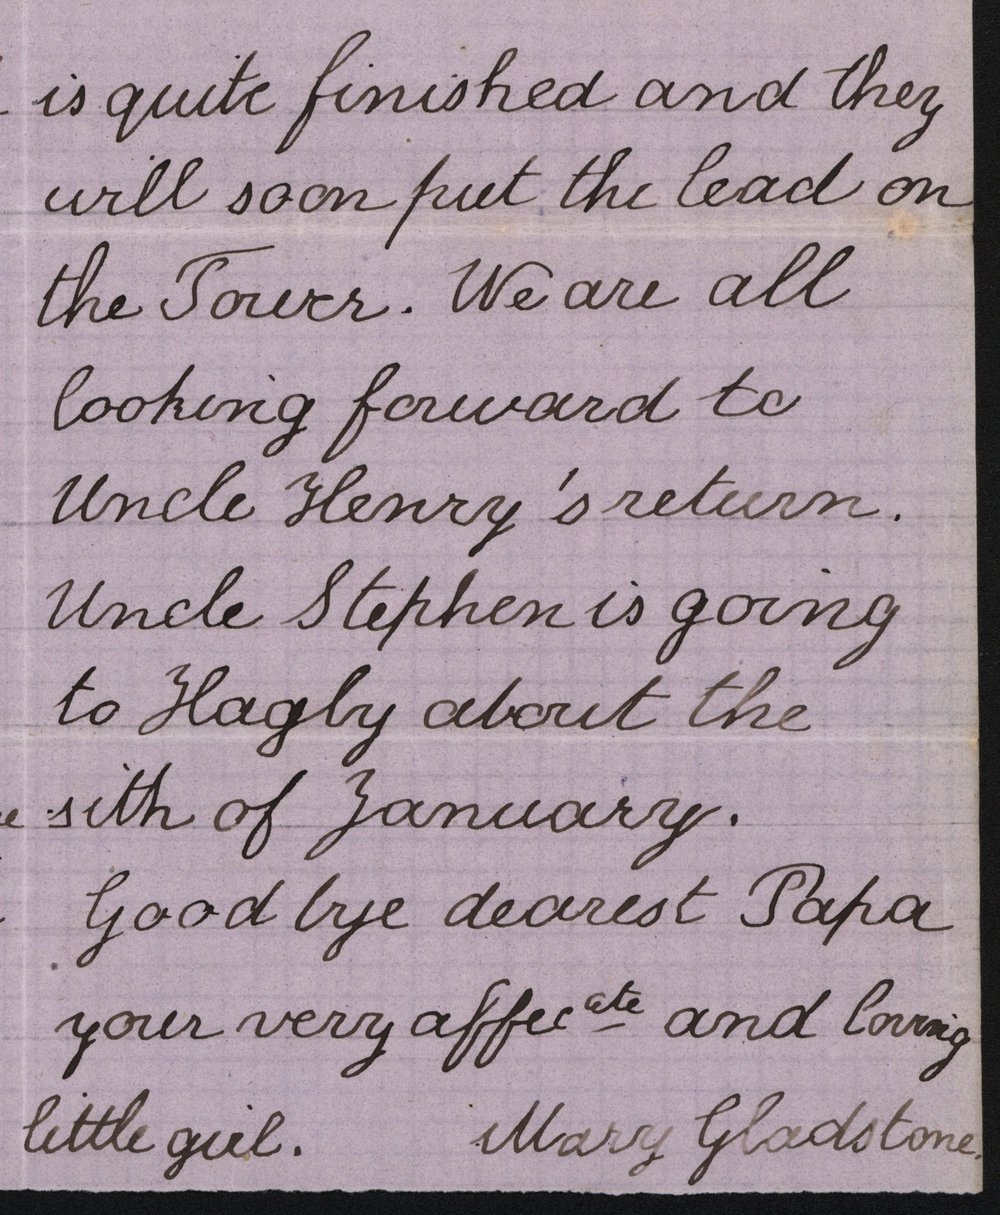 is quite finished and they
will soon put the lead on
the Tower. We are all
looking forward to
Uncle Henry's return.
Uncle Stephen is going
to Hagley about the
sith of January.
Good bye dearest Papa
your very affecate and loving
little girl. Mary Gladstone.